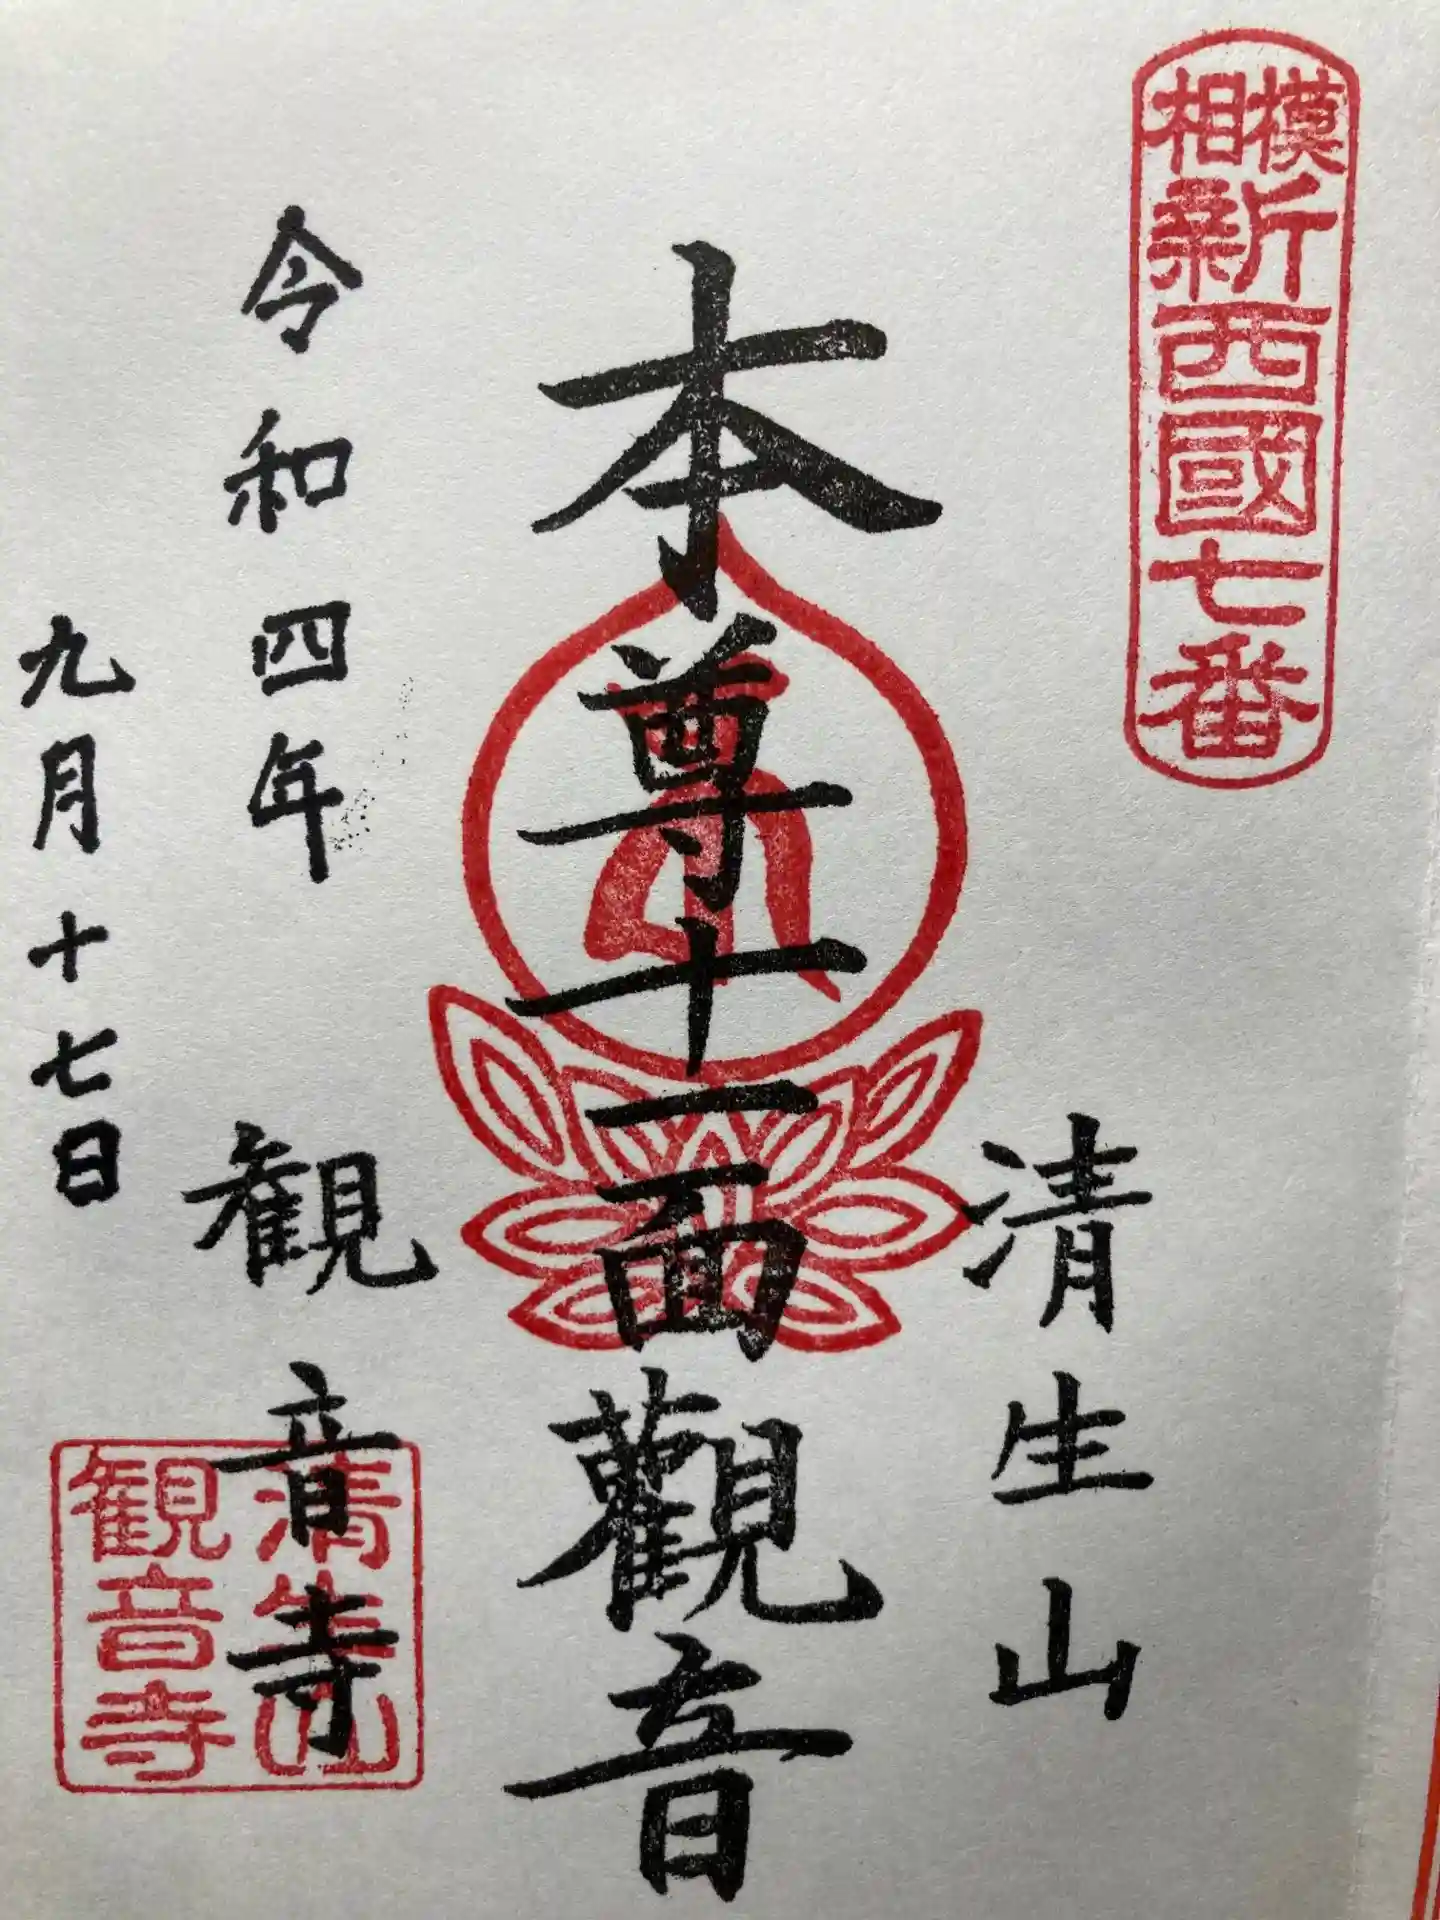 相模
新西國七番
清生山
本尊十一面觀音
令和四年
九月十七日
観音寺
清生山
観音寺